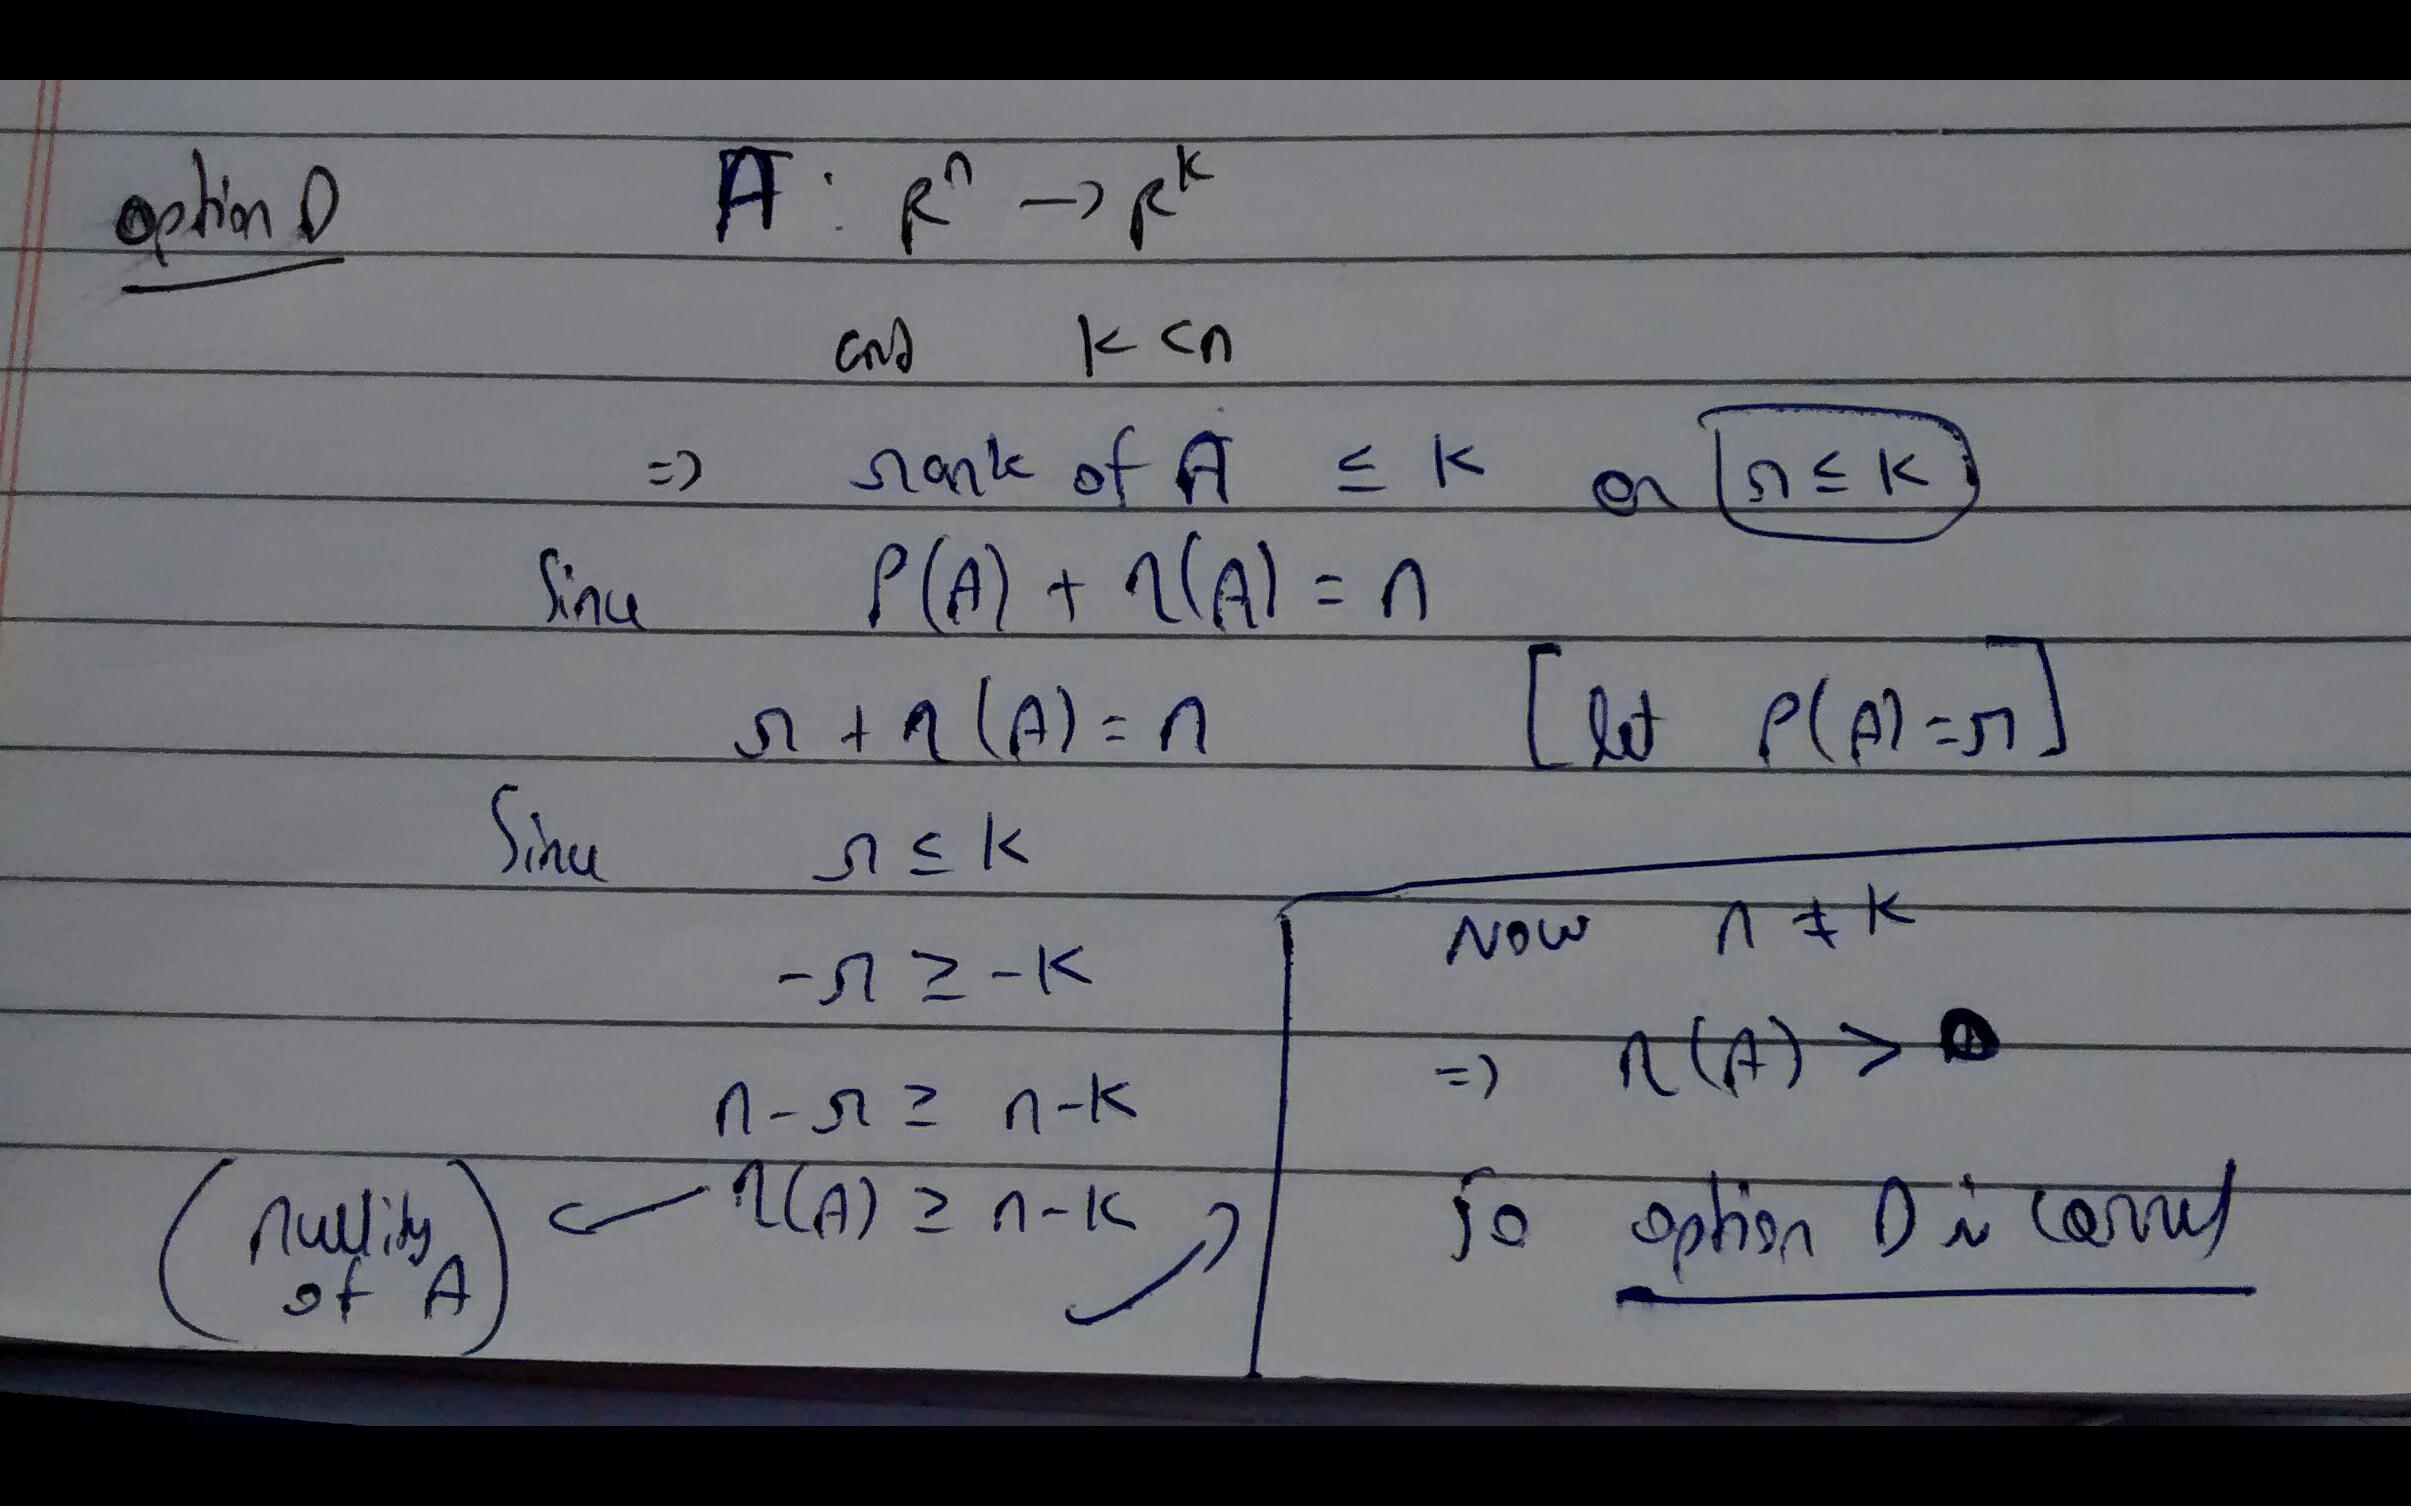 option D
A : R^n → R^k
and k < n
⇒ rank of A ≤ k or r ≤ k
Since ρ(A) + η(A) = n
r + η(A) = n [let ρ(A) = r]
Since r ≤ k
-r ≥ -k
n - r ≥ n - k
(nullity of A) ← η(A) ≥ n - k
Now n ≠ k
⇒ η(A) > 0
So option D is correct